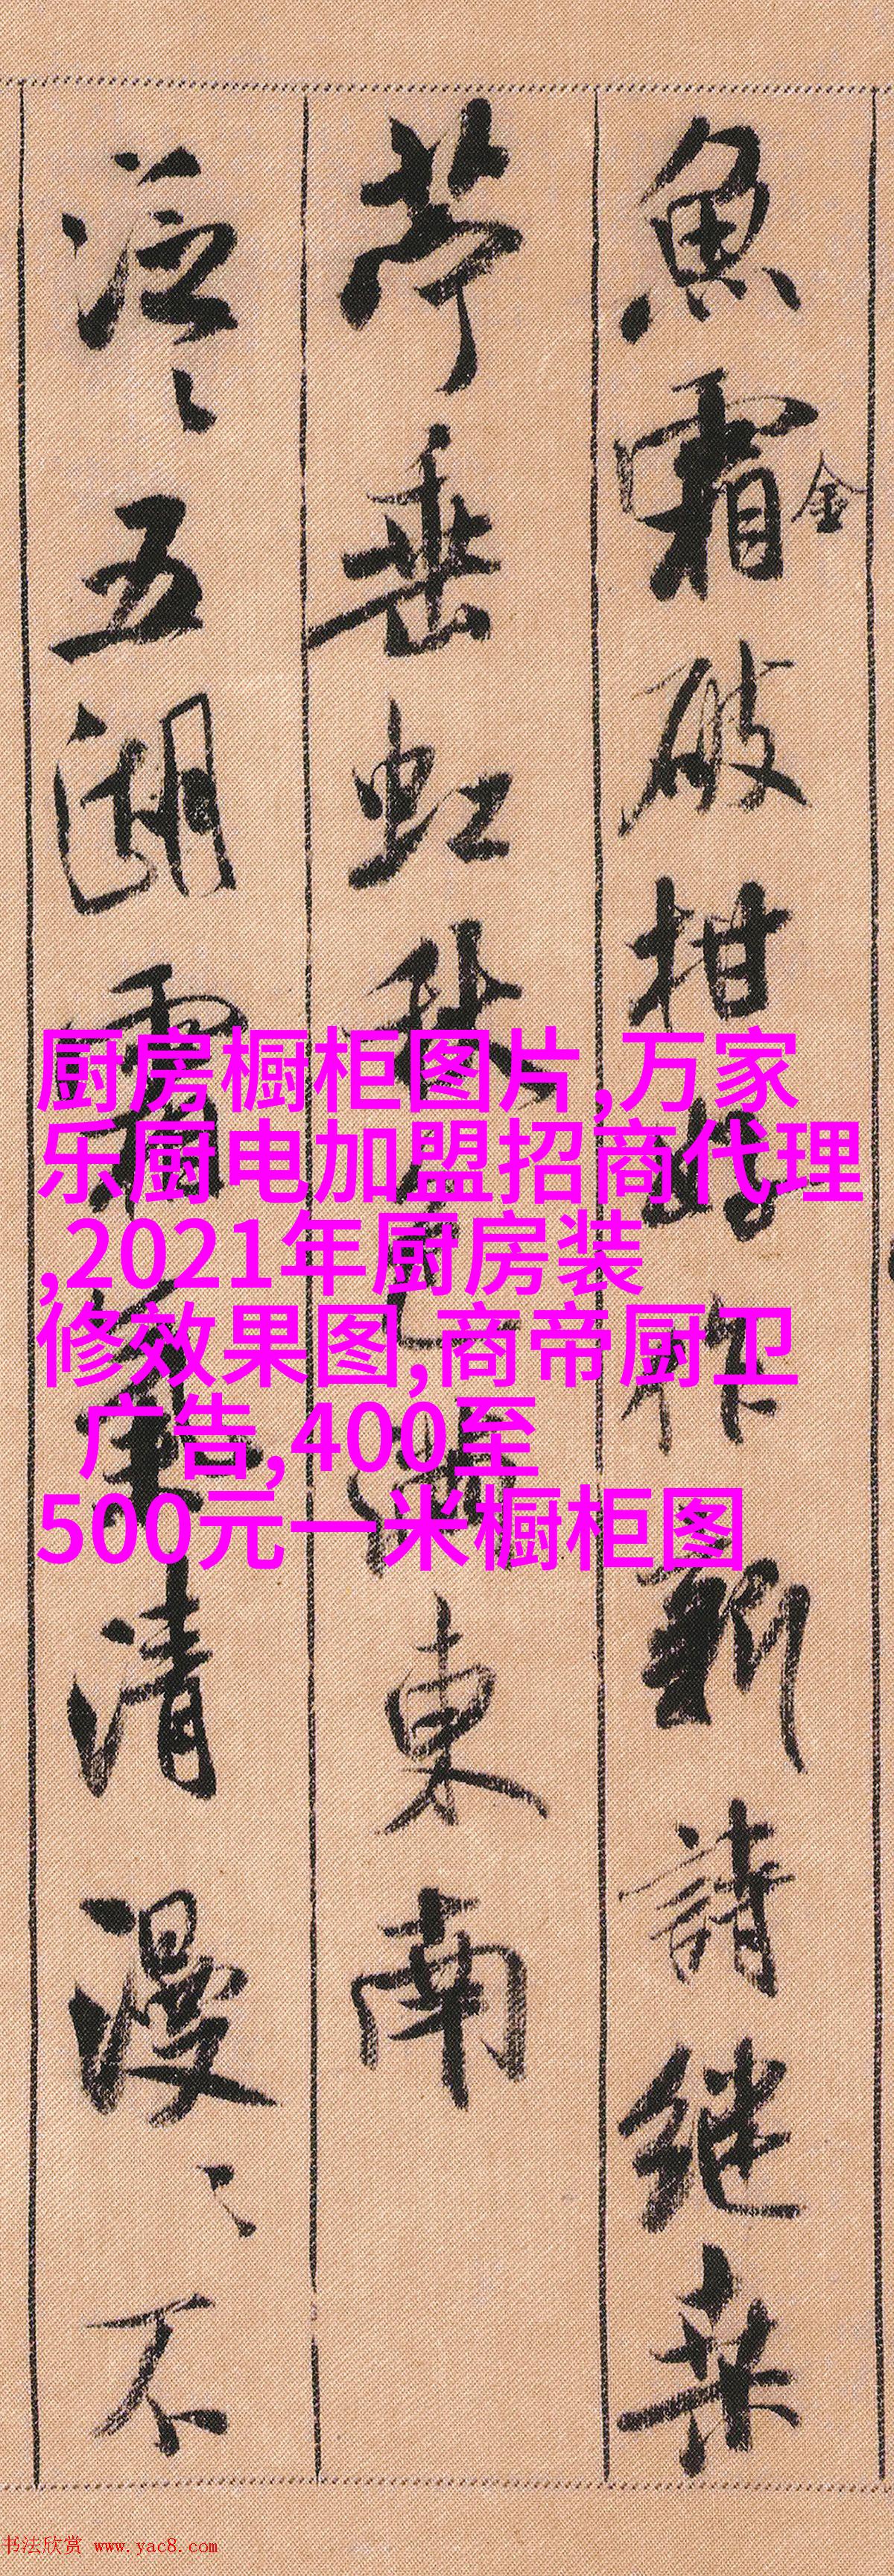 魚霜破柑好作新詩繼桑
金
苧垂虹秋色滿東南
泛〻五湖霜氣清漫〻不
厨房橱柜图片,万家
乐厨电加盟招商代理
,2021年厨房装
修效果图,商帝厨卫
广告,400至
500元一米橱柜图
书法欣赏 www.yac8.com